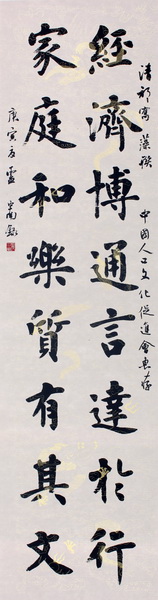 清祁寯藻聯 中國人口文化促進會惠存
經濟博通言達於行
家庭和樂質有其文
庚寅